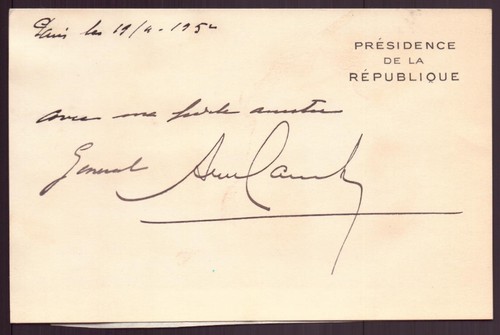 Paris les 19/4-1952
PRÉSIDENCE
DE LA
RÉPUBLIQUE
avec ma fidèle amitié
General